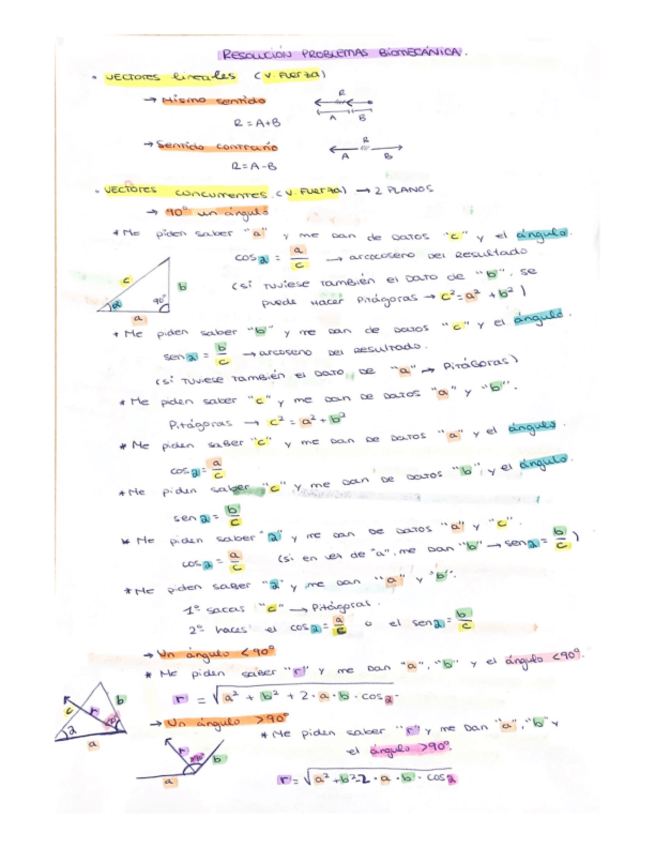 RESOLUCIÓN PROBLEMAS BIOMECÁNICA.
• VECTORES lineales (V. FUERZA)
→ Mismo sentido
R
A B
R = A+B
→ Sentido contrario
R
A B
R = A-B
• VECTORES CONCURRENTES (V. FUERZA) → 2 PLANOS
→ 90° un ángulo
* Me piden saber "a" y me dan de datos "c" y el ángulo.
cos α = a/c → arcocoseno del resultado
(si tuviese también el dato de "b", se
puede hacer Pitágoras → c² = a² + b²)
c b
α 90°
a
* Me piden saber "b" y me dan de datos "c" y el ángulo.
sen α = b/c → arcoseno del resultado.
(si tuviese también el dato de "a" → Pitágoras)
* Me piden saber "c" y me dan de datos "a" y "b".
Pitágoras → c² = a² + b²
* Me piden saber "c" y me dan de datos "a" y el ángulo.
cos α = a/c
* Me piden saber "c" y me dan de datos "b" y el ángulo.
sen α = b/c
* Me piden saber "α" y me dan de datos "a" y "c".
cos α = a/c (si en vez de "a", me dan "b" → sen α = b/c)
* Me piden saber "α" y me dan "a" y "b".
1º sacas "c" → Pitágoras.
2º haces el cos α = a/c o el sen α = b/c
→ Un ángulo < 90°
* Me piden saber "r" y me dan "a", "b" y el ángulo < 90°.
c r b
α
a
r = √a² + b² + 2·a·b·cos α
→ Un ángulo > 90°
* Me piden saber "r" y me dan "a", "b" y
el ángulo > 90°.
r b
a
r = √a² + b² - 2·a·b·cos α